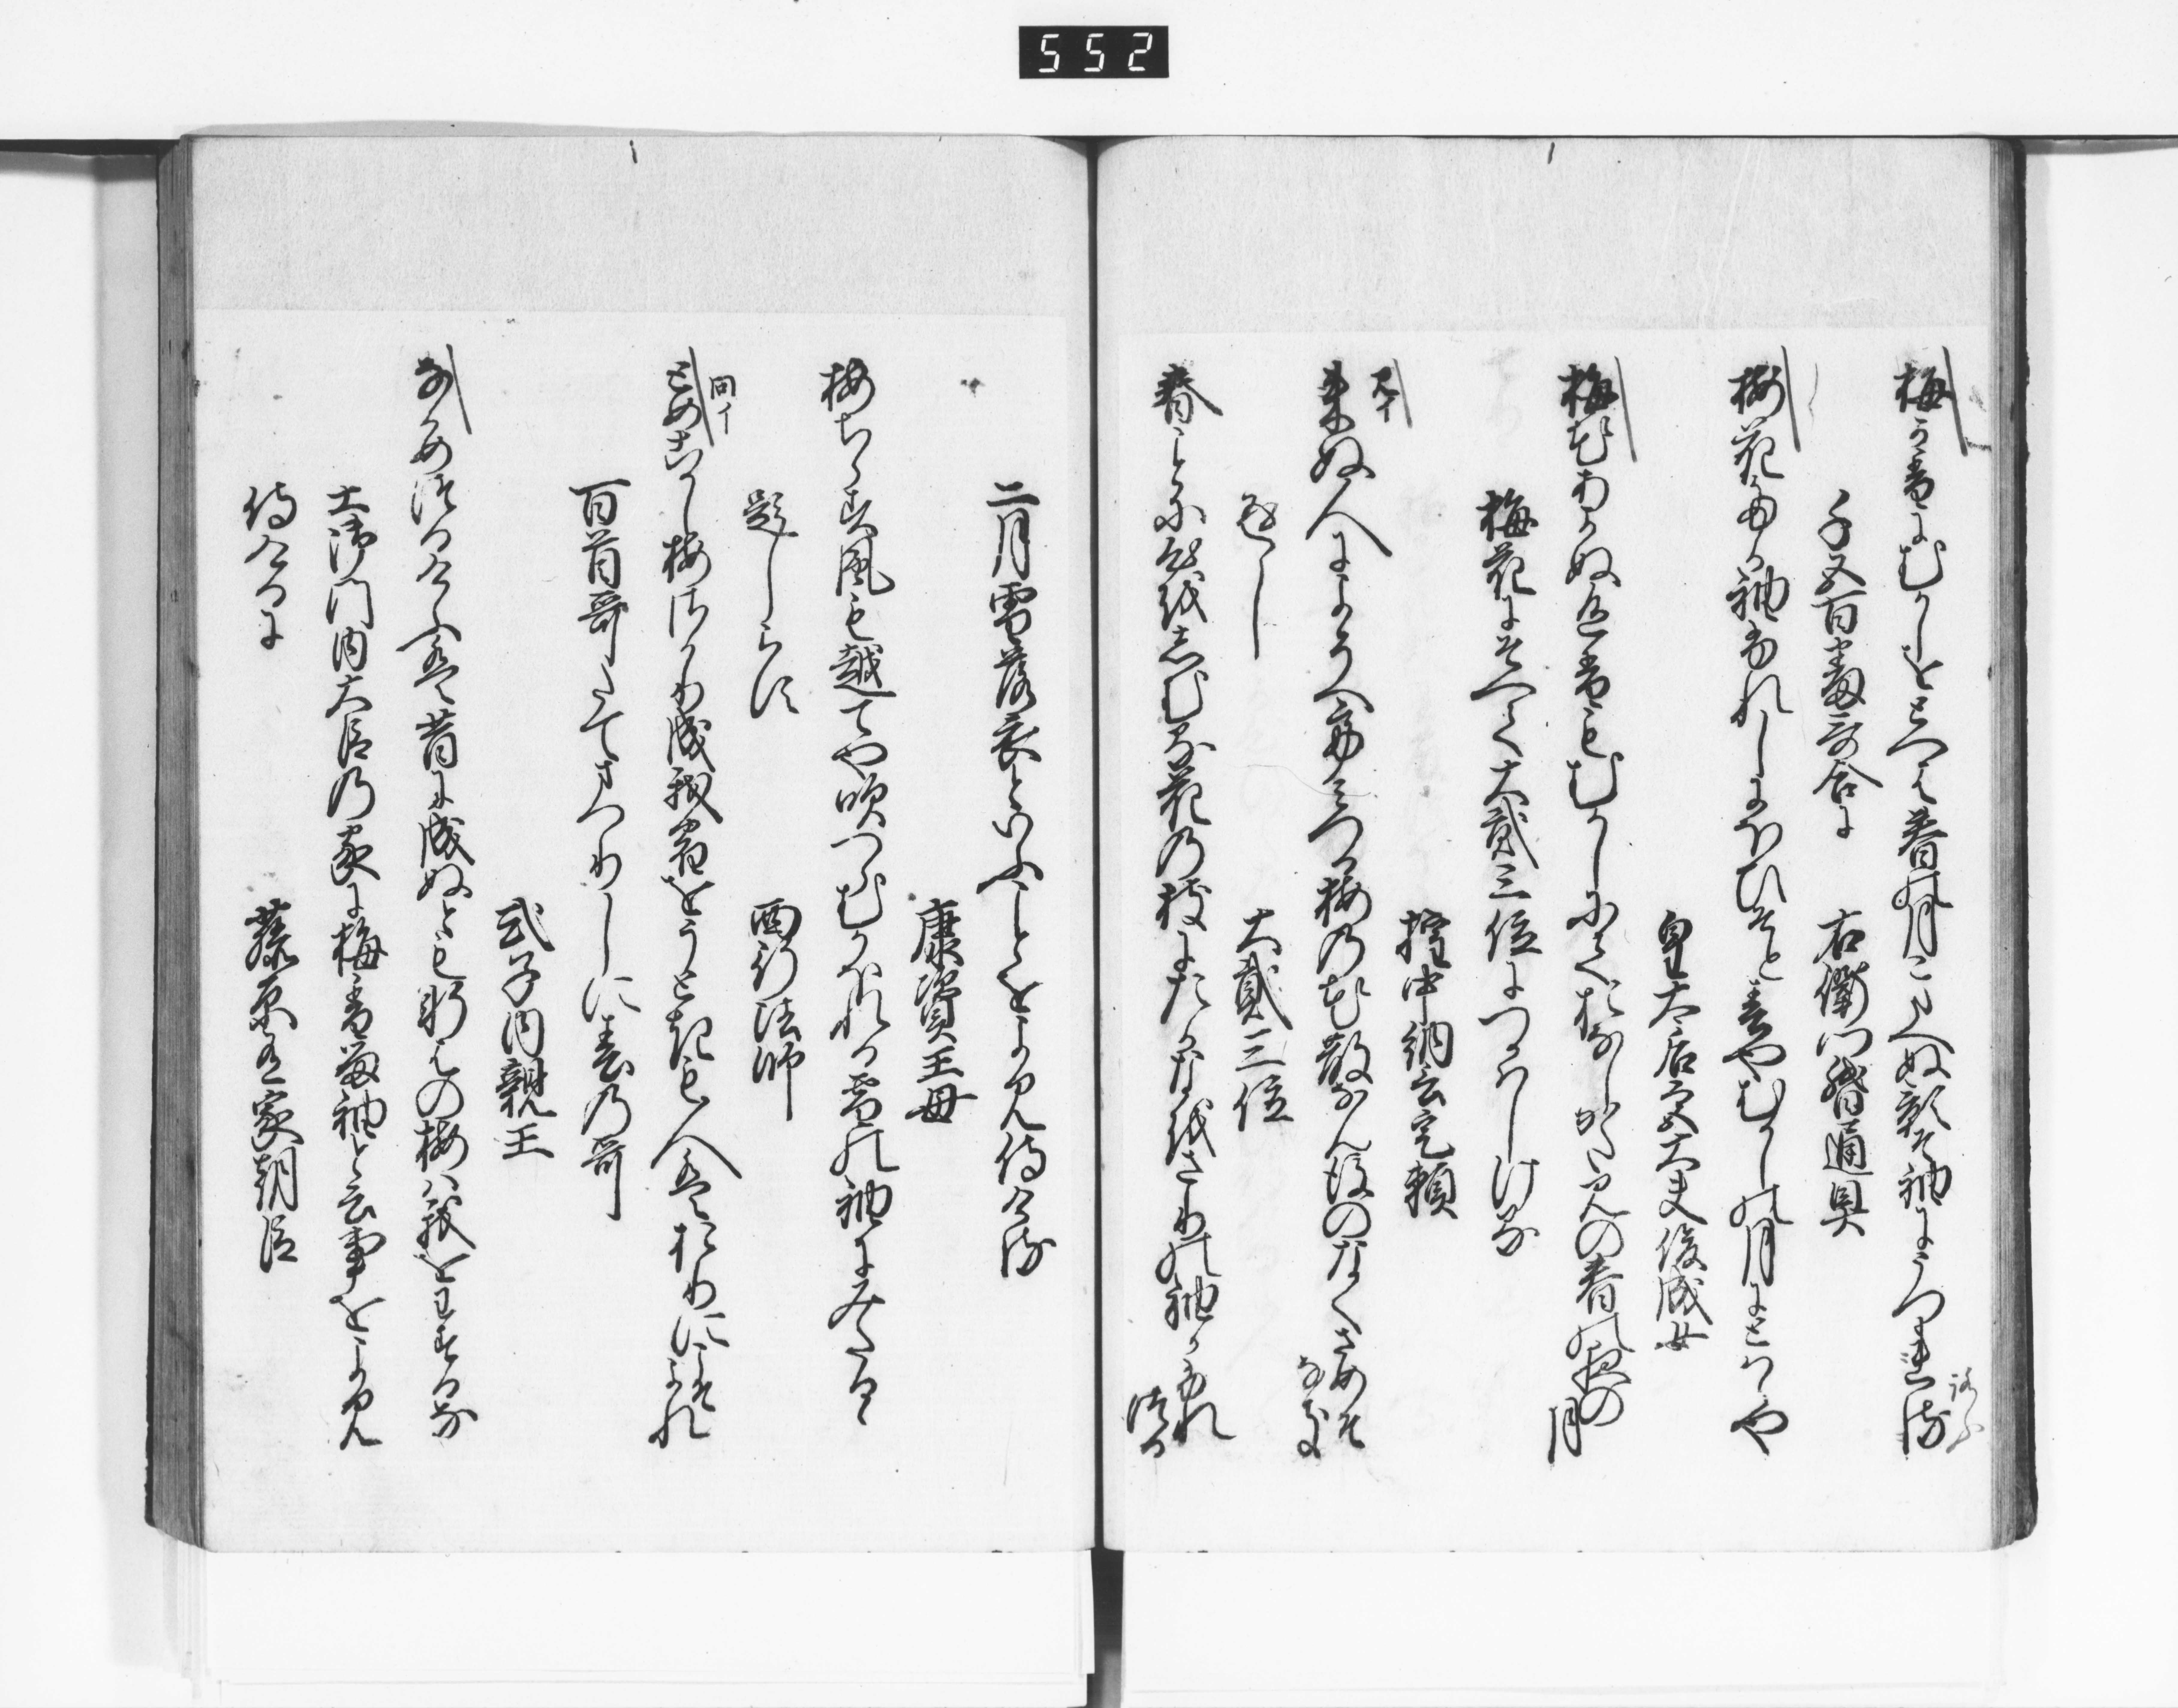 552
梅か香にむかしをとへは春の月こたへぬ影そ袖にうつれる
ろふ
千五百番哥合に
右衛門督通具
梅花たか袖ふれしにほひそと春やむかしの月にとはゝや
皇太后宮大夫俊成女
梅花あかぬ色香もむかしにておなしかたみの春の夜の月
梅花にそへて大貳三位につかはしける
権中納言定頼
来ぬ人によそへてみつる梅の花散なん後のなくさめそなき
返し
大貳三位
春ことに心をしむる花の枝にたかなをさりの袖かふれつる
二月雪落衣といふことをよみ侍ける
康資王母
梅ちらす風も越てや吹つらむかほれる雪の袖にみたるゝ
題しらす
西行法師
問イ
とめこかし梅さかり成我宿をうときも人はおりにこそよれ
百首哥たてまつりしに春の哥
式子内親王
なかめつるけふは昔に成ぬとも軒はの梅は我をわするな
土御門内大臣の家に梅香留袖と云事をよみ
侍けるに
藤原有家朝臣